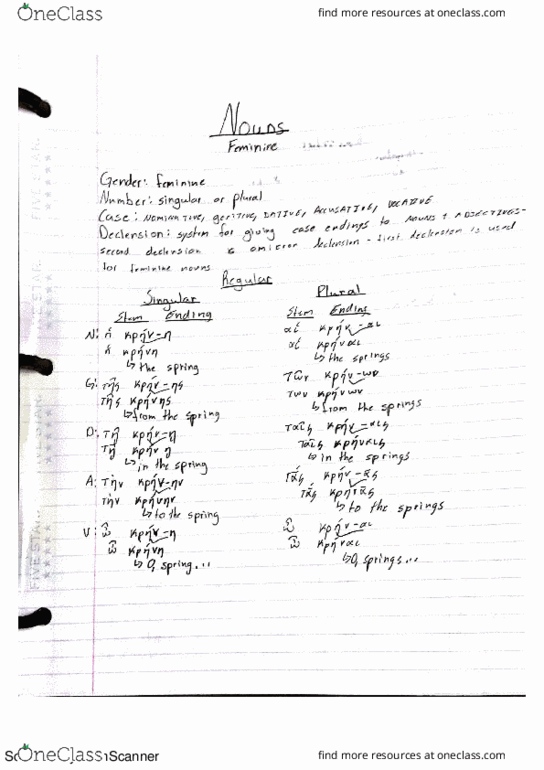 OneClass
find more resources at oneclass.com
Nouns
Feminine
Gender: feminine
Number: singular or plural
Case: NOMINATIVE, GENITIVE, DATIVE, ACCUSATIVE, VOCATIVE
Declension: system for giving case endings to nouns + adjectives-
second declension is omicron declension - first declension is used
for feminine nouns
Regular
Singular Plural
Stem Ending Stem Ending
N: ἡ κρήν-η αἱ κρήν-αι
ἡ κρήνη αἱ κρήναι
↳ the spring ↳ the springs
G: τῆς κρήν-ης τῶν κρήν-ων
τῆς κρήνης των κρήνων
↳ from the spring ↳ from the springs
D: τῇ κρήν-ῃ ταῖς κρήν-αις
τῇ κρήνῃ ταῖς κρήναις
↳ in the spring ↳ in the springs
A: τὴν κρήν-ην τάς κρήν-ᾱς
τὴν κρήνην τάς κρήνᾱς
↳ to the spring ↳ to the springs
V: ὦ κρήν-η ὦ κρήν-αι
ὦ κρήνη ὦ κρήναι
↳ O, spring... ↳ O, springs...
FIVE STAR
OneClass Scanner
find more resources at oneclass.com